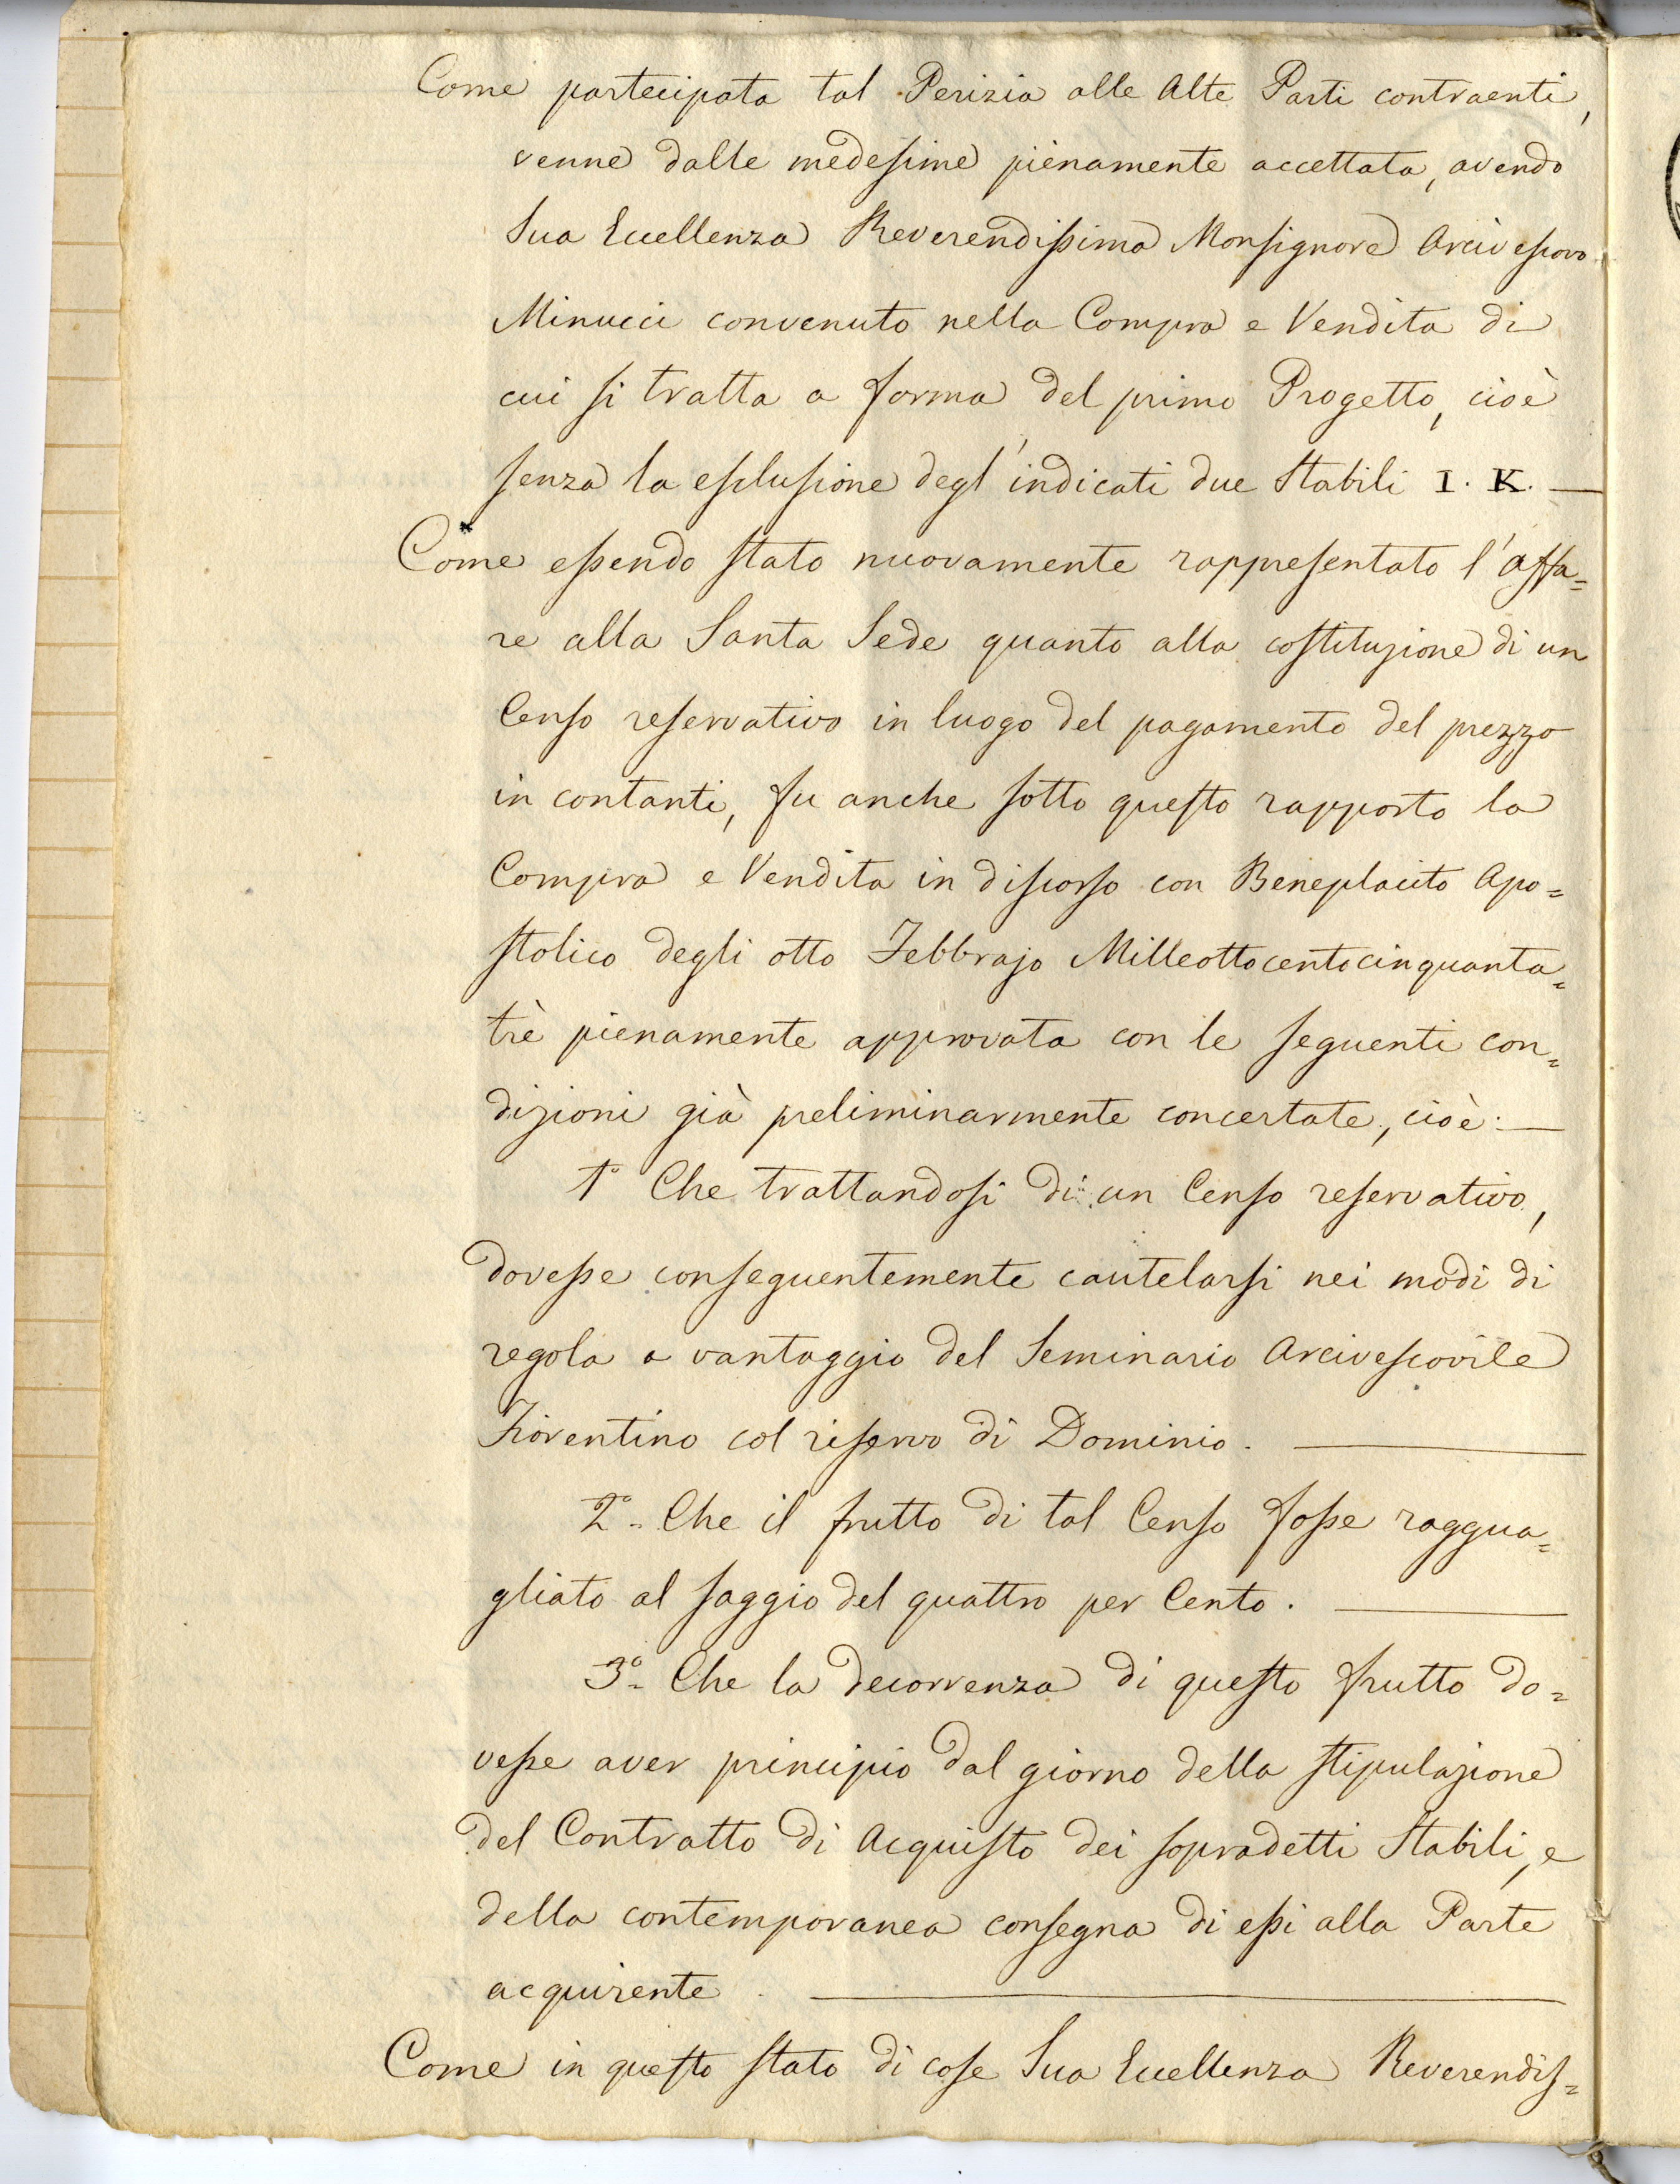 Come partecipata tal Perizia alle Alte Parti contraenti,
venne dalle medesime pienamente accettata, avendo
Sua Eccellenza Reverendissima Monsignore Arcivescovo
Minucci convenuto nella Compra e Vendita di
cui si tratta a forma del primo Progetto, cioè
senza la esclusione degl'indicati due Stabili I. K. —
Come essendo stato nuovamente rappresentato l'affa=
re alla Santa Sede quanto alla costituzione di un
Censo reservativo in luogo del pagamento del prezzo
in contanti, fu anche sotto questo rapporto la
Compra e Vendita in discorso con Beneplacito Apo=
stolico degli otto Febbrajo Milleottocentocinquanta=
trè pienamente approvata con le seguenti con=
dizioni già preliminarmente concertate, cioè: —
1° Che trattandosi di un Censo reservativo,
dovesse conseguentemente cautelarsi nei modi di
regola a vantaggio del Seminario Arcivescovile
Fiorentino col riservo di Dominio. —
2°. Che il frutto di tal Censo fosse raggua=
gliato al saggio del quattro per Cento. —
3°. Che la decorrenza di questo frutto do=
vesse aver principio dal giorno della stipulazione
del Contratto di Acquisto dei sopradetti Stabili, e
della contemporanea consegna di essi alla Parte
acquirente. —
Come in questo stato di cose Sua Eccellenza Reverendis=